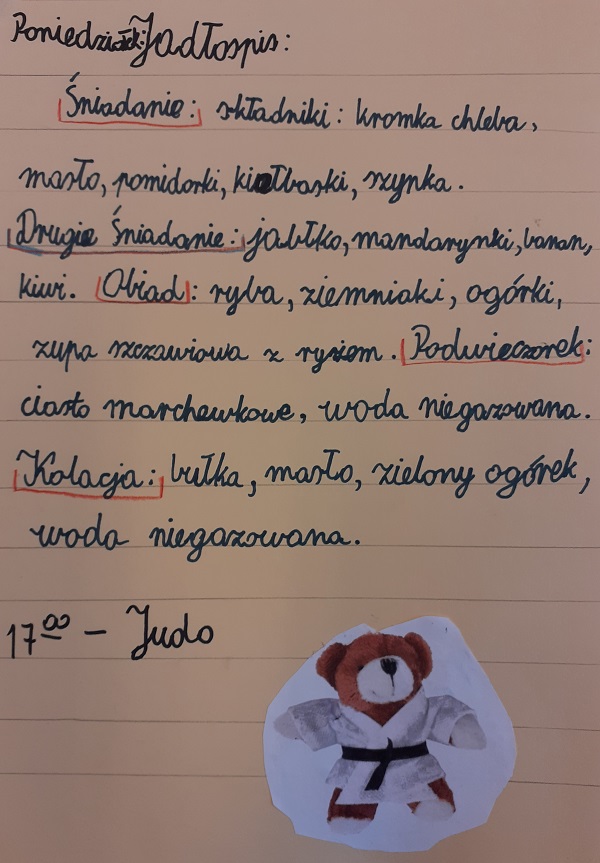 Poniedziałek: Jadłospis:
Śniadanie: składniki: kromka chleba,
masło, pomidorki, kiełbaski, szynka.
Drugie Śniadanie: jabłko, mandarynki, banan,
kiwi. Obiad: ryba, ziemniaki, ogórki,
zupa szczawiowa z ryżem. Podwieczorek:
ciasto marchewkowe, woda niegazowana.
Kolacja: bułka, masło, zielony ogórek,
woda niegazowana.
17⁰⁰ – Judo